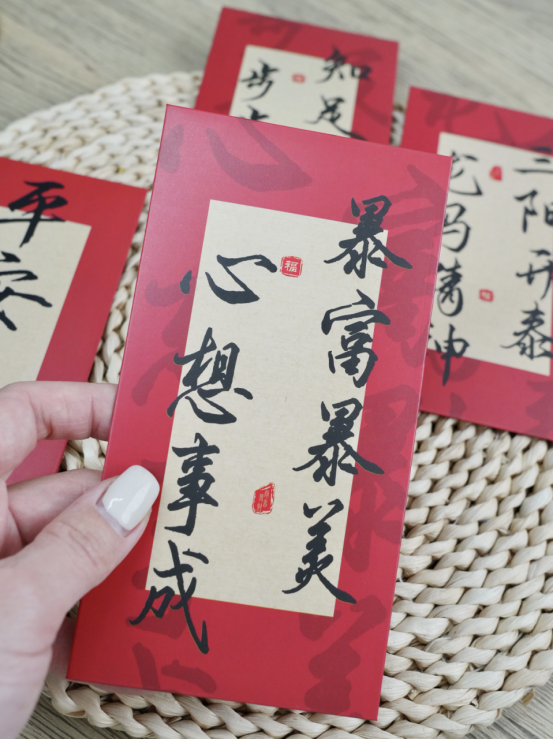 暴富暴美
心想事成
福
知足
步步
三阳开泰
龙马精神
平安